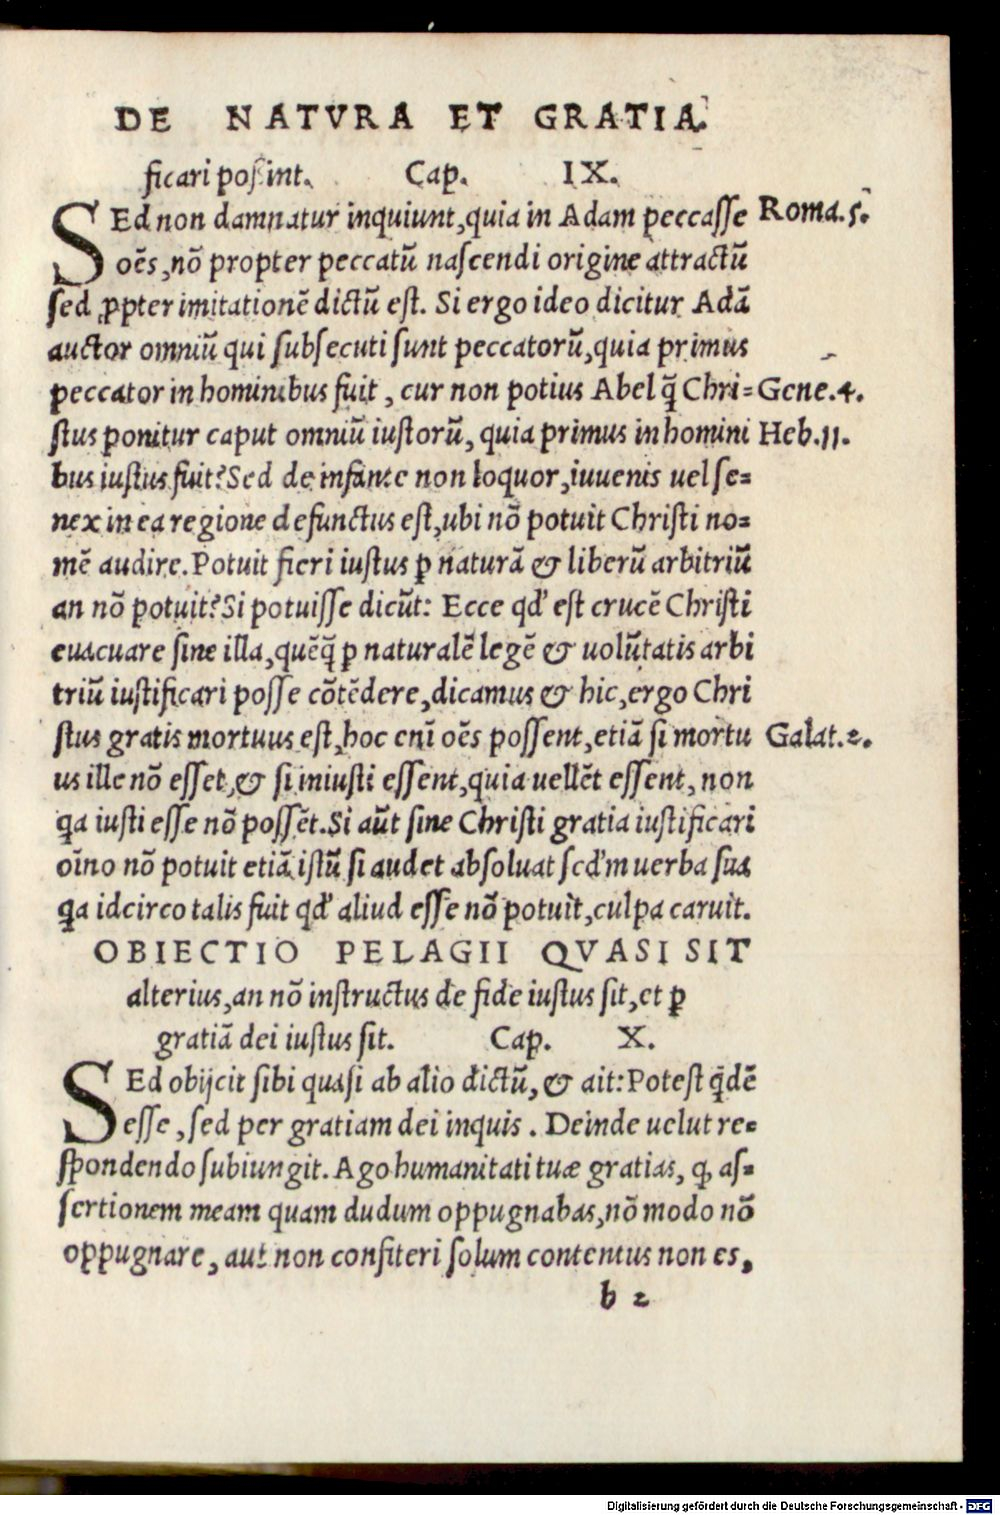 DE NATVRA ET GRATIA.
ficari possint. Cap. IX.
SEd non damnatur inquiunt, quia in Adam peccasse Roma.5.
oẽs, nõ propter peccatũ nascendi origine attractũ
sed ꝓpter imitationẽ dictũ est. Si ergo ideo dicitur Adã
auctor omniũ qui subsecuti sunt peccatorũ, quia primus
peccator in hominibus fuit, cur non potius Abel q̃ Chri= Gene.4.
stus ponitur caput omniũ iustorũ, quia primus in homini Heb.11.
bus iustus fuit? Sed de infante non loquor, iuuenis uel se=
nex in ea regione defunctus est, ubi nõ potuit Christi no=
mẽ audire. Potuit fieri iustus ꝑ naturã & liberũ arbitriũ
an nõ potuit? Si potuisse dicũt: Ecce qd' est crucẽ Christi
euacuare sine illa, quẽq̃ ꝑ naturalẽ legẽ & uolũtatis arbi
triũ iustificari posse cõtẽdere, dicamus & hic, ergo Chri
stus gratis mortuus est, hoc enĩ oẽs possent, etiã si mortu Galat.2.
us ille nõ esset, & si iniusti essent, quia uellẽt essent, non
ꝗa iusti esse nõ possẽt. Si aũt sine Christi gratia iustificari
oĩno nõ potuit etiã istũ si audet absoluat scd'm uerba sua
ꝗa idcirco talis fuit qd' aliud esse nõ potuit, culpa caruit.
OBIECTIO PELAGII QVASI SIT
alterius, an nõ instructus de fide iustus sit, et ꝑ
gratiã dei iustus sit. Cap. X.
SEd obijcit sibi quasi ab alio dictũ, & ait: Potest q̃dẽ
esse, sed per gratiam dei inquis. Deinde uelut re=
spondendo subiungit. Ago humanitati tuæ gratias, ꝙ as=
sertionem meam quam dudum oppugnabas, nõ modo nõ
oppugnare, aut non confiteri solum contentus non es,
b 2
Digitalisierung gefördert durch die Deutsche Forschungsgemeinschaft - DFG